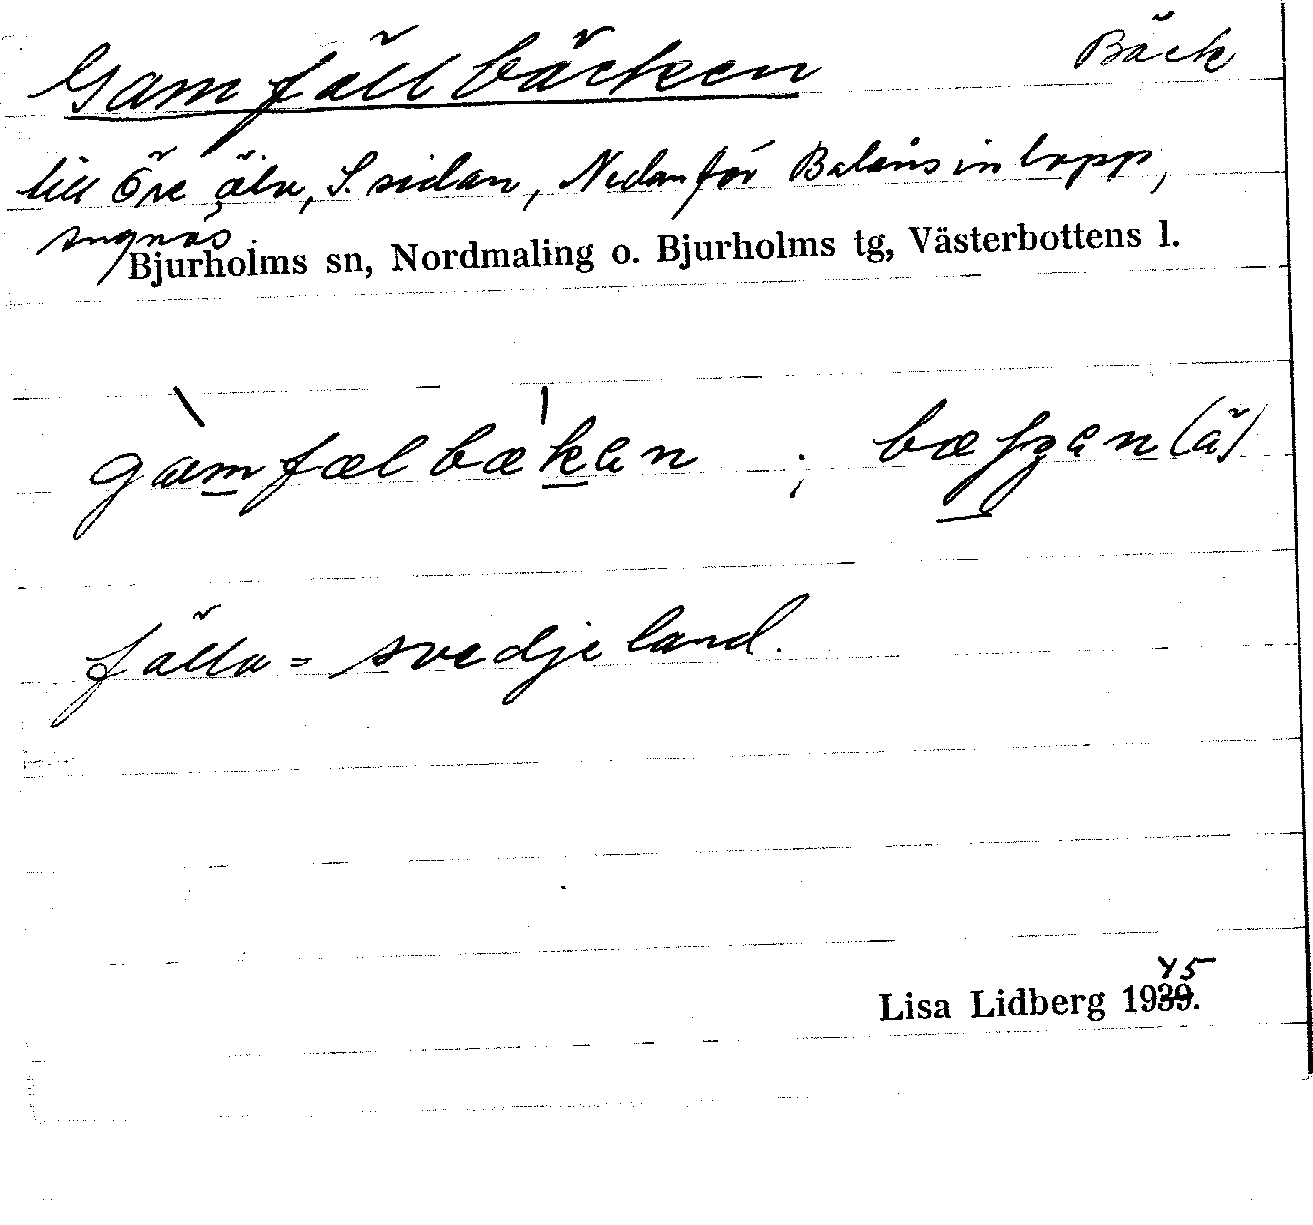 Gamfällbäcken Bäck
till Öre älv, S. sidan, Nedanför Balåns inlopp,
Angnäs.
Bjurholms sn, Nordmaling o. Bjurholms tg, Västerbottens l.
gamfælbækən ; (ä)
fälla = svedjeland.
45
Lisa Lidberg 1939.